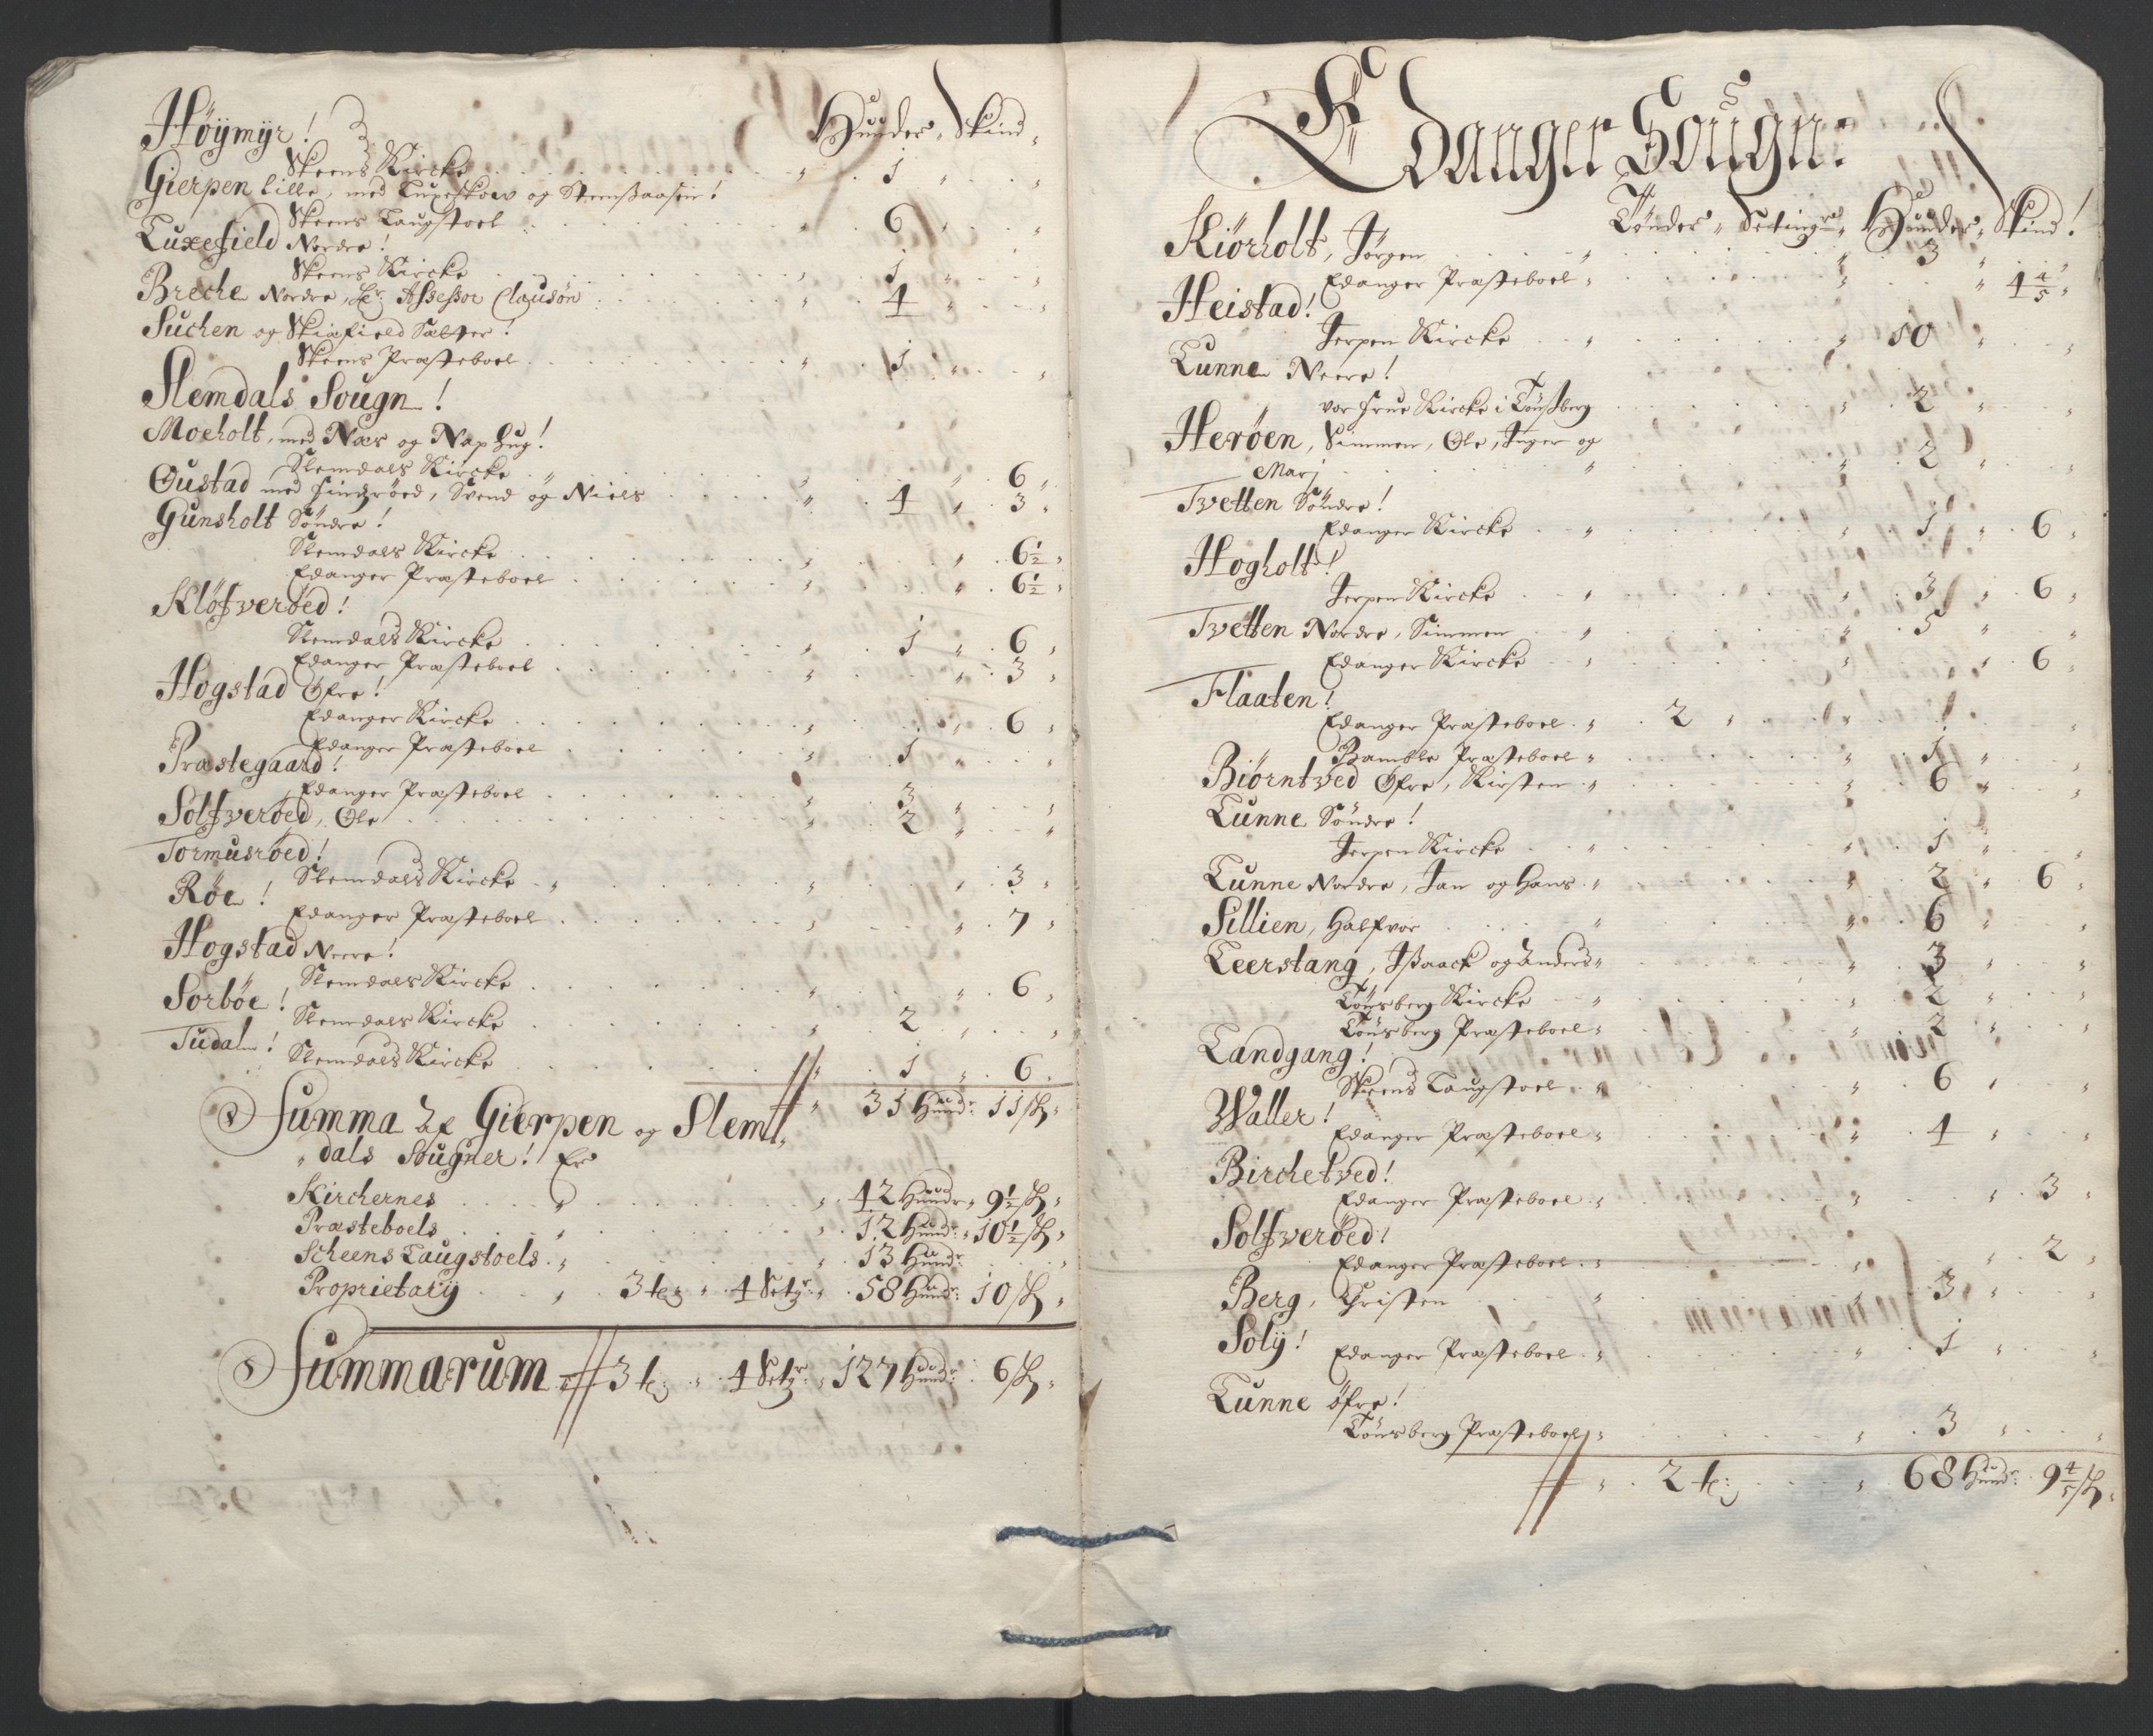 Höÿmÿr! Hunder, Skind,
Skeens Kircke 1
Gierpen lille, med Luxeskow og Stenssaasen!
Skeens Laugstoel 6
Luxefield Nordre!
Skeens Kircke 1
Breche Nordre, Hr Assessor Clausøn 4
Suchen og Skiafield Sætter!
Skeens Præsteboel 1
Slemdals Sougn!
Moeholt, med Næs og Naphug!
Slemdals Kircke 6
Oustad med Findzröed, Svend og Niels 4 3
Gunsholt Söndre!
Slemdals Kircke 6½
Edanger Præsteboel 6½
Klöfveröed!
Slemdals Kircke 1 6
Edanger Præsteboel 3
Hogstad Öfre!
Edanger Kircke 6
Edanger Præsteboel 1
Præstegaard!
Edanger Præsteboel 3
Solfveröed, Ole 2
Tormusröed!
Slemdals Kircke 3
Röe!
Edanger Præsteboel 7
Hogstad Neere!
Slemdals Kircke 6
Sorböe!
Slemdals Kircke 2
Tudal!
Slemdals Kircke 1 6
31 Hundr 11 sk
Summa Af Gierpen og Slem
dals Sougner! Er
Kirchernes 42 Hundr 9½ sk
Præsteboels 12 Hundr 10½ sk
Scheens Laugstoels 13 Hundr
Proprietary 3 tr 4 Setgr 58 Hundr 10 sk
Summarum 3 tr 4 Setgr 127 Hundr 6 sk
Edanger Sougn:
Tönder, Setinger, Hunder, Skind!
Kiörholt, Jörgen 3
Edanger Præsteboel 4 4/5
Heistad!
Jerpen Kircke 10
Lunne Neere!
vor Frue Kircke i Tönsberg 2
Heröen, Simmen, Ole, Inger og
Marj 2
Tvetten Söndre!
Edanger Kircke 1 6
Hogholt!
Jerpen Kircke 3 6
Tvetten Nordre, Simmen 5
Edanger Kircke 6
Flaaten!
Edanger Præsteboel 2
Bamble Præsteboel 1
Biörntved Öfre, Kirsten 6
Lunne Söndre!
Jerpen Kircke 1
Lunne Nordre, Jan og Hans 2 6
Sillien, Halfvor 6
Leerstang, Issaack og Anders 3
Tönsberg Kircke 2
Tönsberg Præsteboel 2
Landgang!
Skeens Laugstoel 6
Waller!
Edanger Præsteboel 4
Birchetved!
Edanger Præsteboel 3
Solfveröed!
Edanger Præsteboel 2
Berg, Christen 3
Solÿ!
Edanger Præsteboel 1
Lunne öfre!
Tönsberg Præsteboel 3
2 tr 68 Hundr 9 4/5 sk